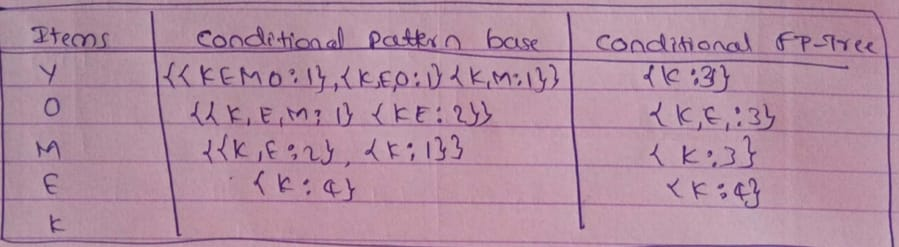 Items Conditional Pattern base Conditional FP-Tree
Y {{KEMO:1},{K,E,O:1}{K,M:1}} {K:3}
O {{K,E,M:1} {KE:2}} {K,E,:3}
M {{K,E:2}, {K:1}} {K:3}
E {K:4} {K:4}
K